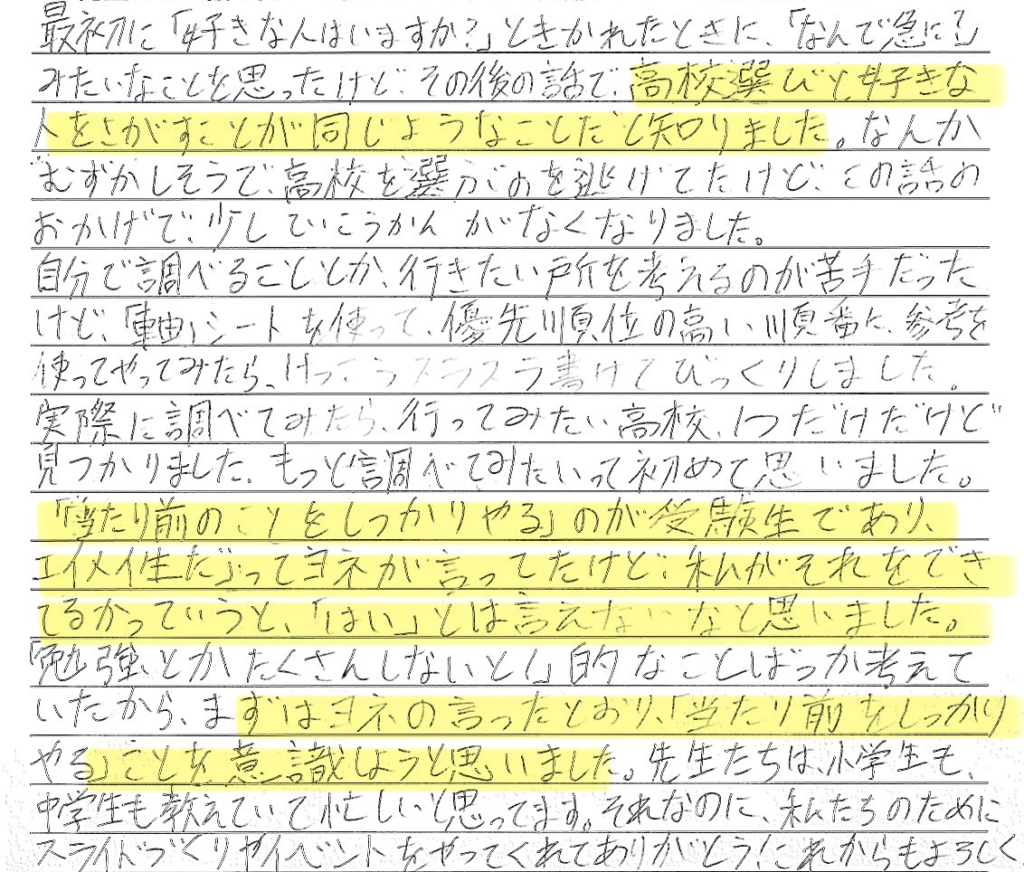 最初に「好きな人はいますか?」ときかれたときに、「なんで急に?」
みたいなことを思ったけど、その後の話で、高校選びと、好きな
人をさがすことが同じようなことだと知りました。なんか
むずかしそうで、高校を選ぶのを逃げてたけど、この話の
おかげで、少していこうかんがなくなりました。
自分で調べることとか、行きたい所を考えるのが苦手だった
けど、「軸」シートを使って、優先順位の高い順番に、参考を
使ってやってみたら、けっこうスラスラ書けてびっくりしました。
実際に調べてみたら、行ってみたい高校、1つだけだけど
見つかりました。もっと調べてみたいって初めて思いました。
「当たり前のことをしっかりやる」のが受験生であり、
エイメイ生だ、ってヨネが言ってたけど、私がそれをでき
てるかっていうと、「はい」とは言えないなと思いました。
「勉強とかたくさんしないと!」的なことばっか考えて
いたから、まずはヨネの言ったとおり、「当たり前をしっかり
やる」ことを意識しようと思いました。先生たちは、小学生も、
中学生も教えていて忙しいと思ってます。それなのに、私たちのために
スライドづくりやイベントをやってくれてありがとう!これからもよろしく